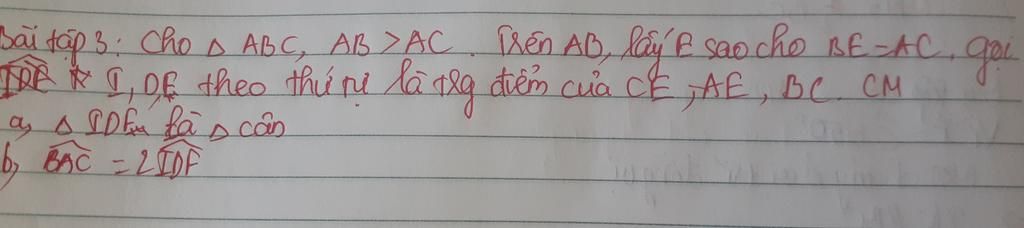 Bài tập 3: Cho △ ABC, AB > AC. Trên AB, lấy E sao cho BE = AC. gọi
I, D, F theo thứ tự là trg điểm của CE, AE, BC. CM
a, △ IDF là △ cân
b, \widehat{BAC} = 2\widehat{IDF}